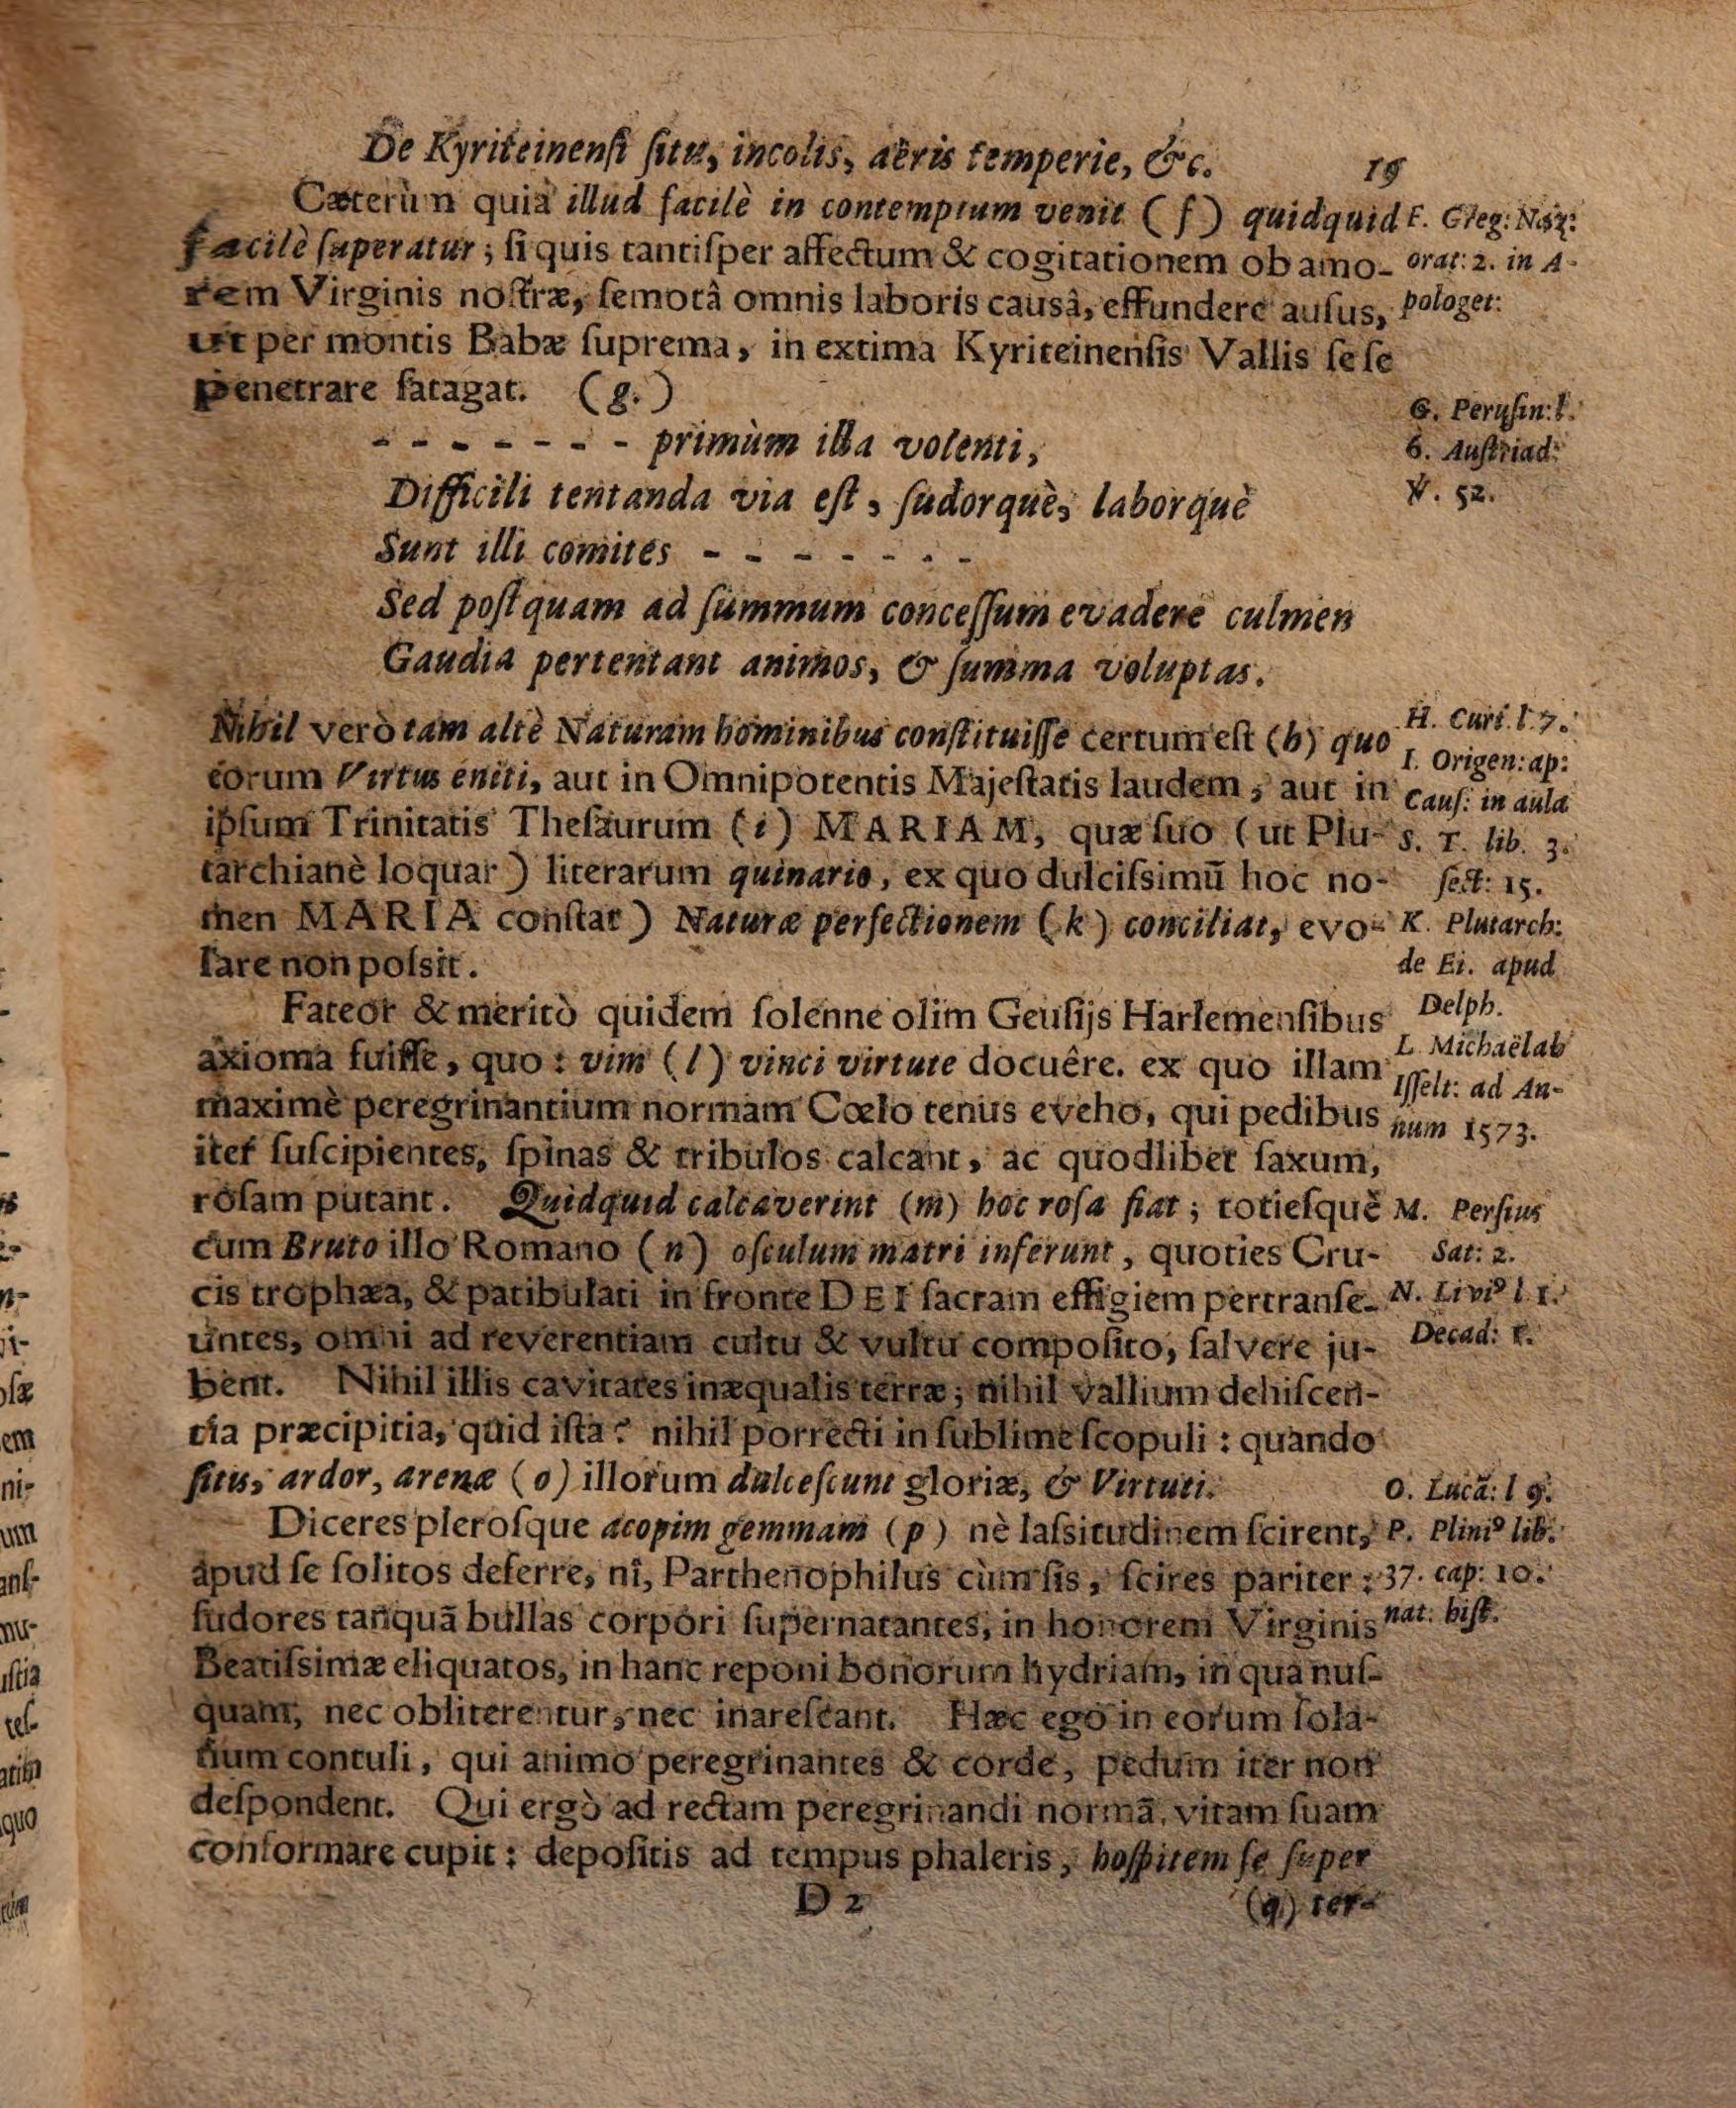 De Kyriteinensi situ, incolis, aëris temperie, &c. 19
Cæterùm quia illud facilè in contemptum venit (f) quidquid
facilè superatur; si quis tantisper affectum & cogitationem ob amo-
rem Virginis nostræ, semotâ omnis laboris causâ, effundere ausus,
ut per montis Babæ suprema, in extima Kyriteinensis Vallis sese
penetrare satagat. (g.)
- - - - - - - primùm illa volenti,
Difficili tentanda via est, sudorquè, laborquè
Sunt illi comites - - - - - - -
Sed postquam ad summum concessum evadere culmen
Gaudia pertentant animos, & summa voluptas.
Nihil verò tam altè Naturam hominibus constituisse certum est (h) quo
eorum Virtus eniti, aut in Omnipotentis Majestatis laudem, aut in
ipsum Trinitatis Thesaurum (i) MARIAM, quæ suo (ut Plu-
tarchianè loquar) literarum quinario, ex quo dulcissimū hoc no-
men MARIA constat) Naturæ perfectionem (k) conciliat, evo-
lare non possit.
Fateor & meritò quidem solenne olim Geusijs Harlemensibus
axioma fuisse, quo: vim (l) vinci virtute docuêre. ex quo illam
maximè peregrinantium normam Cœlo tenus eveho, qui pedibus
iter suscipientes, spinas & tribulos calcant, ac quodlibet saxum,
rosam putant. Quidquid calcaverint (m) hoc rosa fiat; totiesquè
cum Bruto illo Romano (n) osculum matri inferunt, quoties Cru-
cis trophæa, & patibulati in fronte DEI sacram effigiem pertranse-
untes, omni ad reverentiam cultu & vultu composito, salvere ju-
bent. Nihil illis cavitates inæqualis terræ; nihil vallium dehiscen-
tia præcipitia, quid ista? nihil porrecti in sublime scopuli: quando
sitis, ardor, arenæ (o) illorum dulcescunt gloriæ, & Virtuti.
Diceres plerosque acopim gemmam (p) nè lassitudinem scirent,
apud se solitos deferre, nî, Parthenophilus cùm sis, scires pariter:
sudores tanquā bullas corpori supernatantes, in honorem Virginis
Beatissimæ eliquatos, in hanc reponi bonorum hydriam, in qua nus-
quam, nec obliterentur, nec inarescant. Hæc ego in eorum sola-
tium contuli, qui animo peregrinantes & corde, pedum iter non
despondent. Qui ergò ad rectam peregrinandi normā, vitam suam
conformare cupit: depositis ad tempus phaleris, hospitem se super
D 2 (q.) ter-
F. Greg: Naz:
orat: 2. in A-
pologet:
G. Perusin: l.
6. Austriad:
℣. 52.
H. Curt. l. 7.
I. Origen: ap:
Caus: in aula
S. T. lib. 3.
sect: 15.
K. Plutarch:
de Ei. apud
Delph.
L. Michaël ab
Isselt: ad An-
num 1573.
M. Persius
Sat: 2.
N. Liviꝰ l. 1.
Decad: 1.
O. Lucā: l 9.
P. Pliniꝰ lib.
37. cap: 10.
nat. hist.